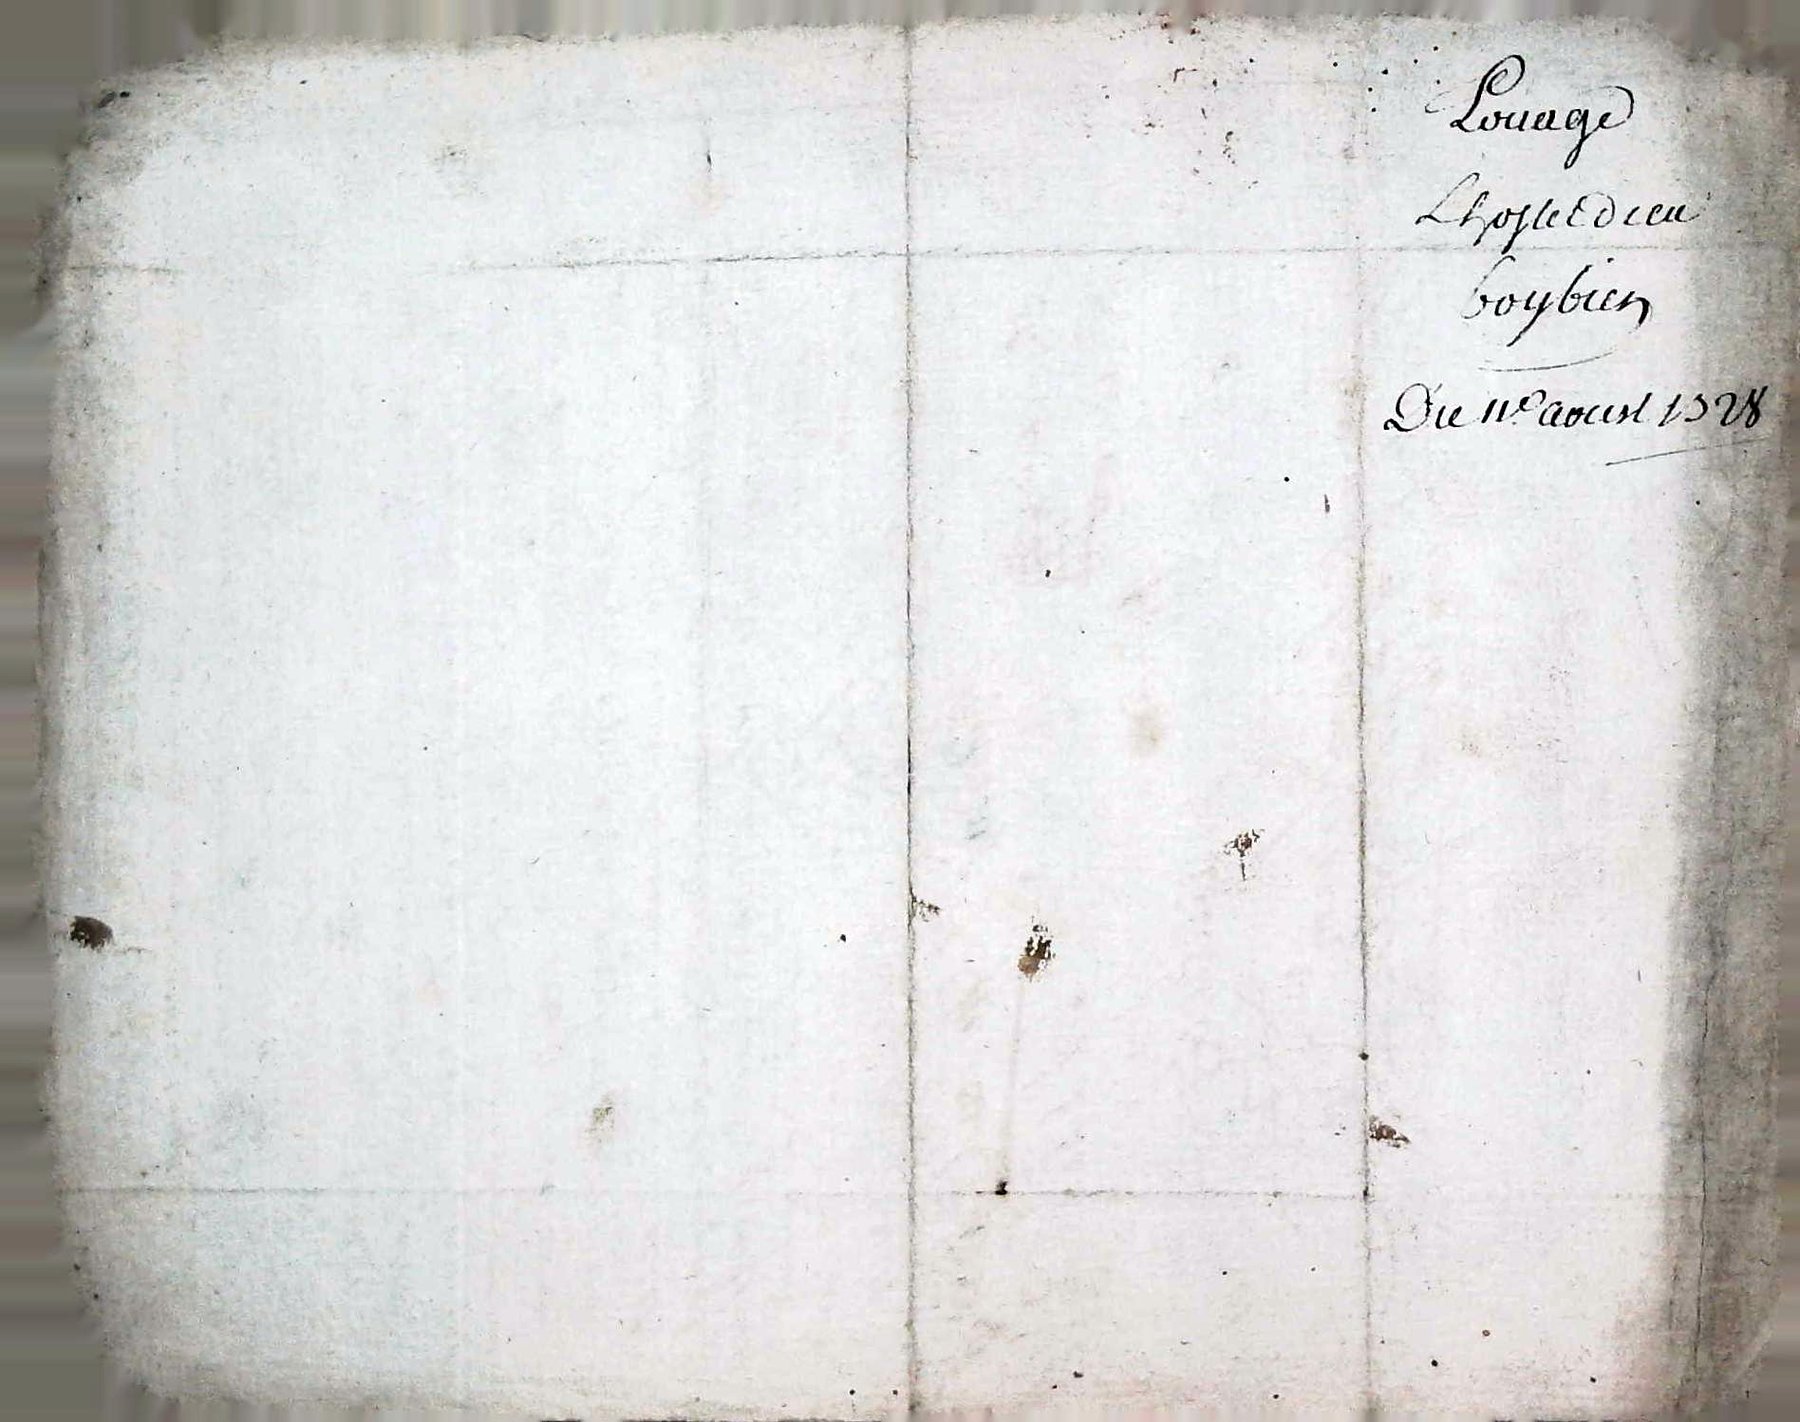 Louage
Lhosteldieu
boybien
Du 11e aoust 1728